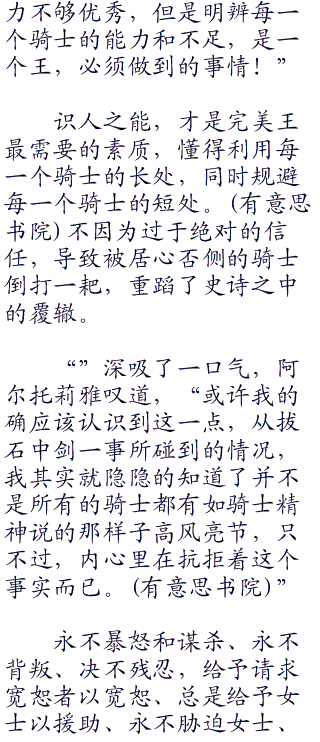 力不够优秀，但是明辨每一
个骑士的能力和不足，是一
个王，必须做到的事情！”
识人之能，才是完美王
最需要的素质，懂得利用每
一个骑士的长处，同时规避
每一个骑士的短处。(有意思
书院) 不因为过于绝对的信
任，导致被居心否侧的骑士
倒打一耙，重蹈了史诗之中
的覆辙。
“”深吸了一口气，阿
尔托莉雅叹道，“或许我的
确应该认识到这一点，从拔
石中剑一事所碰到的情况，
我其实就隐隐的知道了并不
是所有的骑士都有如骑士精
神说的那样子高风亮节，只
不过，内心里在抗拒着这个
事实而已。(有意思书院)”
永不暴怒和谋杀、永不
背叛、决不残忍，给予请求
宽恕者以宽恕、总是给予女
士以援助、永不胁迫女士、